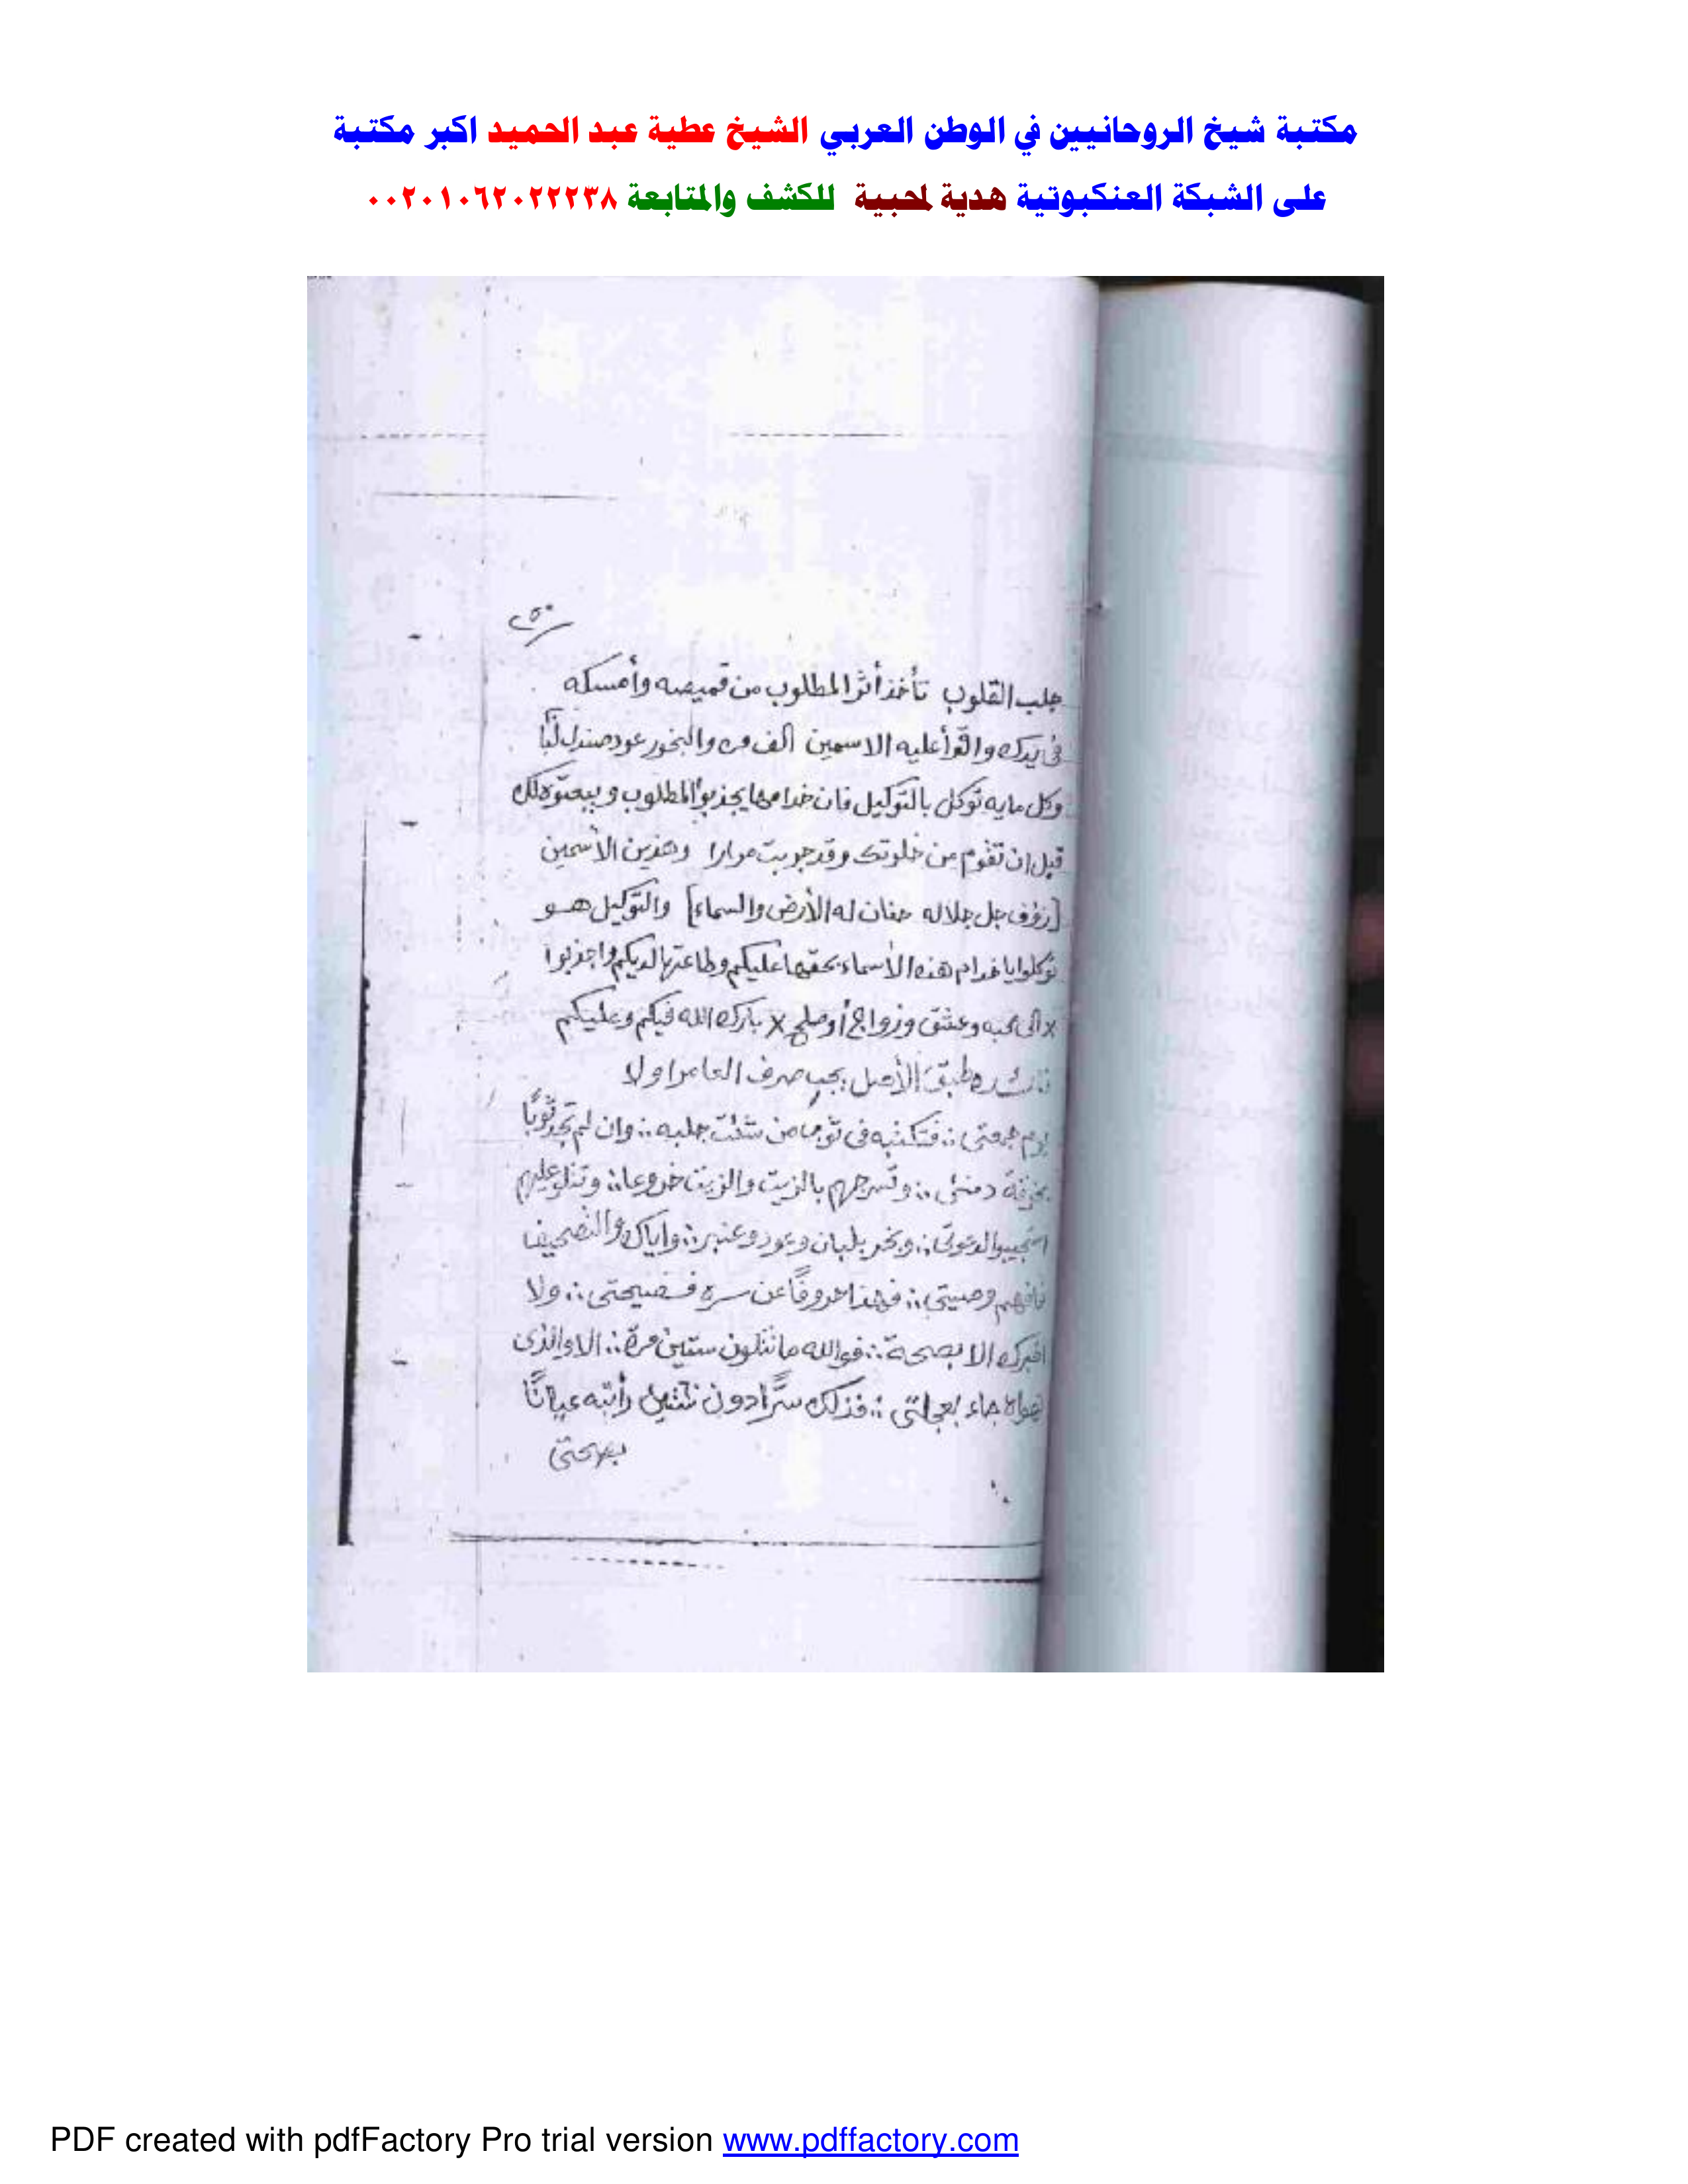 مكتبة شيخ الروحانيين في الوطن العربي الشيخ عطية عبد الحميد اكبر مكتبة
على الشبكة العنكبوتية هدية لمحبية للكشف والمتابعة ٠٠٢٠١٠٦٢٠٢٢٢٣٨
جلب القلوب تأخذ أثر المطلوب من قميصه وأمسكه
في يدك واقرأ عليه الاسمين الف مره والبخور عود صندل
وكل مايه توكل بالتوكيل فان خدامها يجذبوا المطلوب و لك
قبل ان تقوم من خلوتك وقد جربت مرارا وهذين الأسمين
[رؤف جل جلاله حنان له الأرض والسماء] والتوكيل هو
توكلوا يا خدام هذه الأسماء بحقها عليكم وطاعتها لديكم واجذبوا
x الى محبه وعشق وزواج أو صلح x بارك الله فيكم وعليكم
طبق الأصل يجب صرف العامر اولا
يوم جمعتى :: فتكتبه فى ثوب من شئت جلبه :: وان لم تجد ثوبًا
:: وتسرجهم بالزيت والزيت :: وتتلو عليهم
:: وبخر بلبان وعود وعنبر :: واياك والتصحيف
فافهم وصيتى :: فهذا حروفًا عن سره :: ولا
الا بصحة :: فوالله ما تتلون ستين مرة :: الا والذى
جاء بعجلتى :: فذلك سرًّا دون رأيته عيانًا
بصحتى
PDF created with pdfFactory Pro trial version www.pdffactory.com